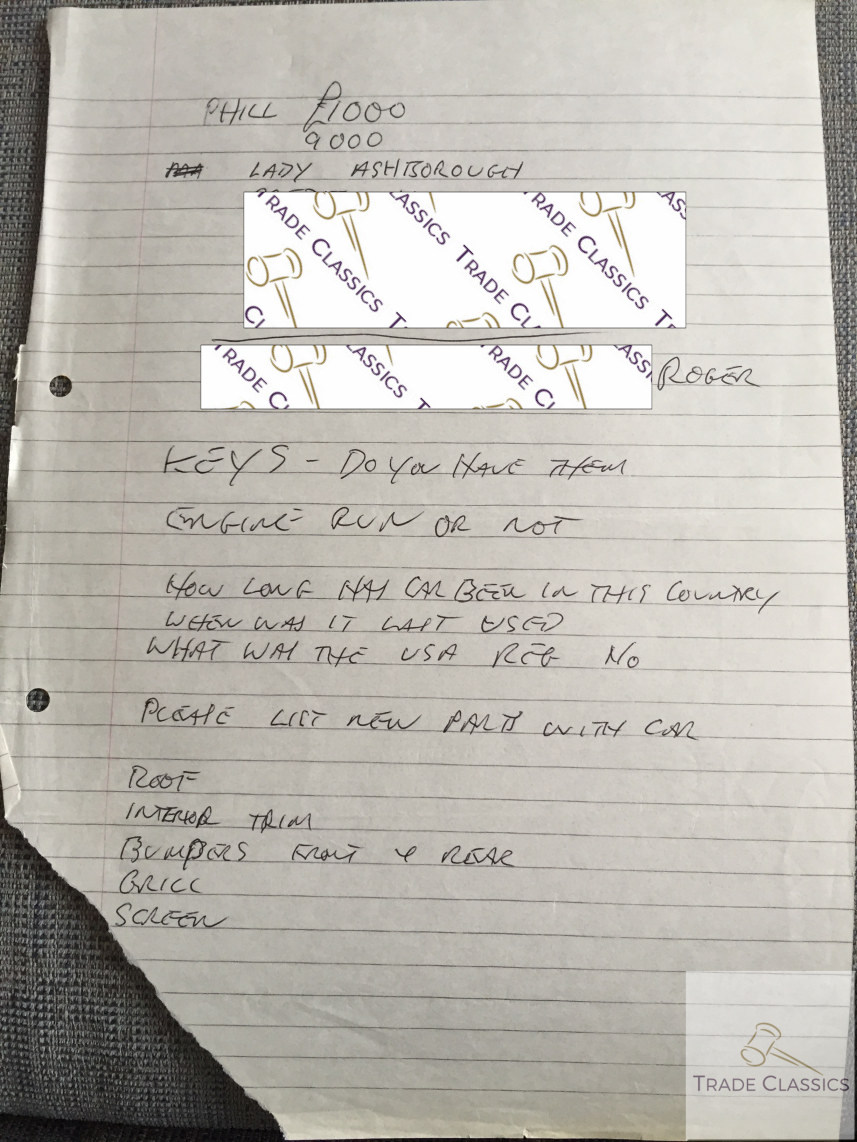 PHILL £1000
9000
LADY ASHBOROUGH
TRADE CLASSICS TRADE CLASSICS TRADE CLASSICS
TRADE CLASSICS TRADE CLASSICS
ROGER
KEYS - DO YOU HAVE THEM
ENGINE RUN OR NOT
HOW LONG HAS CAR BEEN IN THIS COUNTRY
WHEN WAS IT LAST USED
WHAT WAS THE USA REG NO
PLEASE LIST NEW PARTS WITH CAR
ROOF
INTERIOR TRIM
BUMPERS FRONT & REAR
GRILL
SCREEN
TRADE CLASSICS